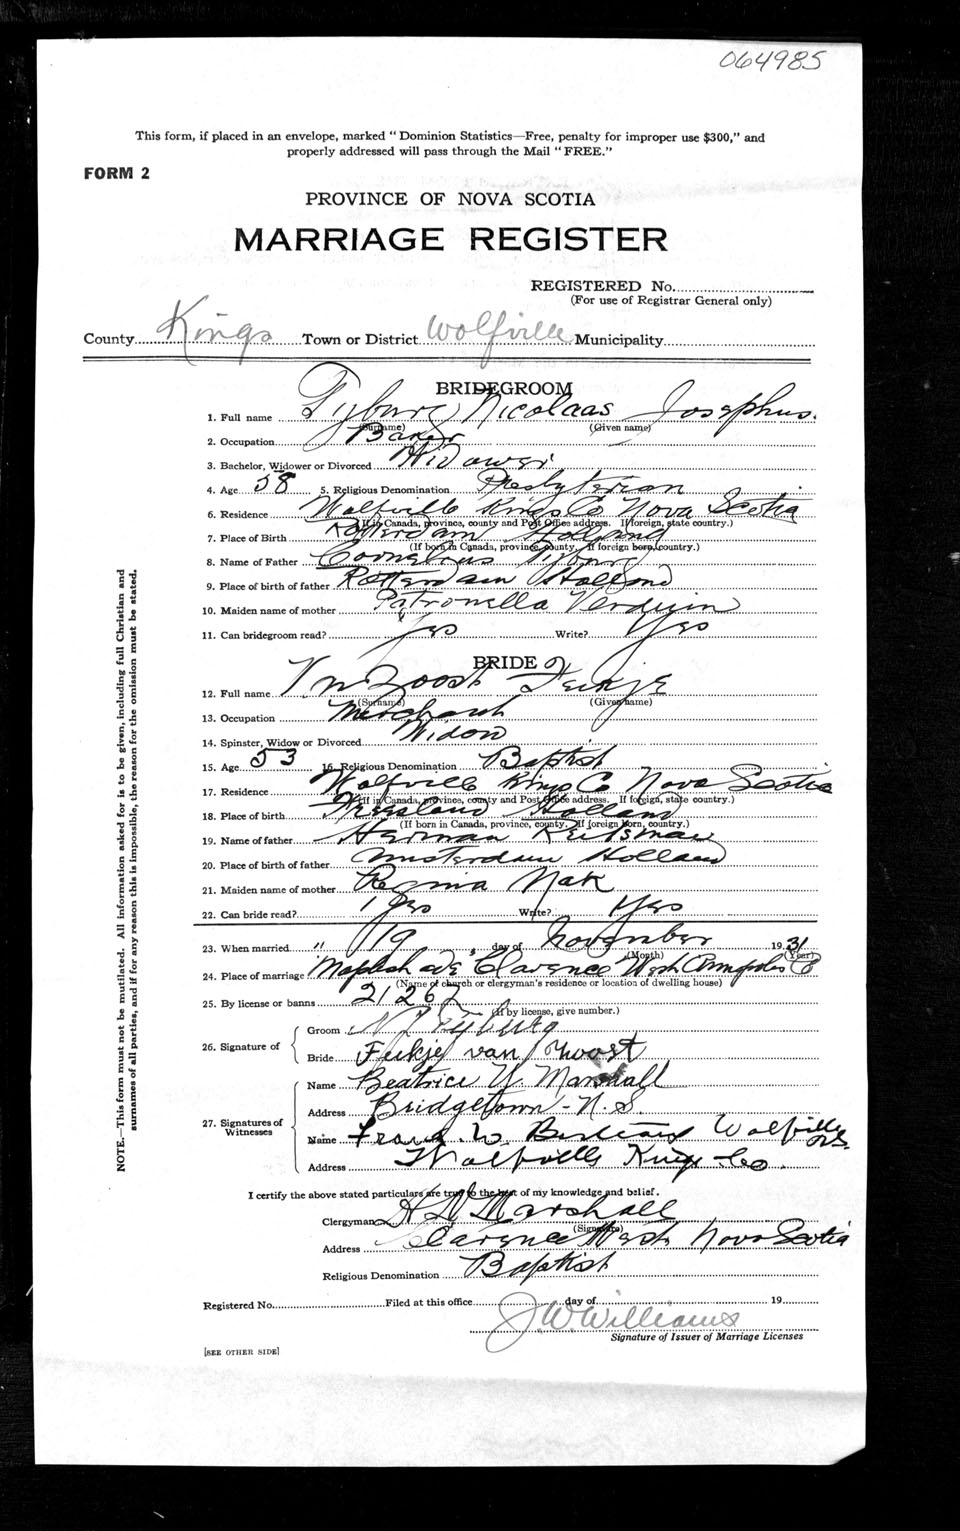 064985
This form, if placed in an envelope, marked "Dominion Statistics—Free, penalty for improper use $300," and
properly addressed will pass through the Mail "FREE."
FORM 2
PROVINCE OF NOVA SCOTIA
MARRIAGE REGISTER
REGISTERED No.
(For use of Registrar General only)
County Kings Town or District Wolfville Municipality
BRIDEGROOM
1. Full name Tyburg Nicolaas Josephus.
(Surname) (Given name)
2. Occupation Baker
3. Bachelor, Widower or Divorced Widower
4. Age 58 5. Religious Denomination Presbyterian
6. Residence Wolfville Kings Co Nova Scotia
(If in Canada, province, county and Post Office address. If foreign, state country.)
7. Place of Birth Rotterdam Holland
(If born in Canada, province, county. If foreign born, country.)
8. Name of Father Cornelius Tyburg
9. Place of birth of father Rotterdam Holland
10. Maiden name of mother Patronella Verduin
11. Can bridegroom read? Yes Write? Yes
BRIDE
12. Full name Vn Zoost Feikje
(Surname) (Given name)
13. Occupation Merchant
14. Spinster, Widow or Divorced Widow
15. Age 53 16. Religious Denomination Baptist
17. Residence Wolfville Kings Co Nova Scotia
(If in Canada, province, county and Post Office address. If foreign, state country.)
18. Place of birth Holland
(If born in Canada, province, county. If foreign born, country.)
19. Name of father Herman
20. Place of birth of father Amsterdam Holland
21. Maiden name of mother Regina Nak
22. Can bride read? Yes Write? Yes
23. When married " 19 day of November 1931
(Month) (Year)
24. Place of marriage Clarence West Annapolis Co
(Name of church or clergyman's residence or location of dwelling house)
25. By license or banns 21262
(If by license, give number.)
26. Signature of
Groom N J Tyburg
Bride Feikje van Zoost
27. Signatures of Witnesses
Name Beatrice V. Marshall
Address Bridgetown - N.S.
Name Frank W. Wolfville NS.
Address Wolfville Kings Co.
I certify the above stated particulars are true to the best of my knowledge and belief.
Clergyman Marshall
(Signature)
Address Clarence West Nova Scotia
Religious Denomination Baptist
Registered No. Filed at this office day of 19
J.W. Williams
Signature of Issuer of Marriage Licenses
[SEE OTHER SIDE]
NOTE.—This form must not be mutilated. All information asked for is to be given, including full Christian and
surnames of all parties, and if for any reason this is impossible, the reason for the omission must be stated.